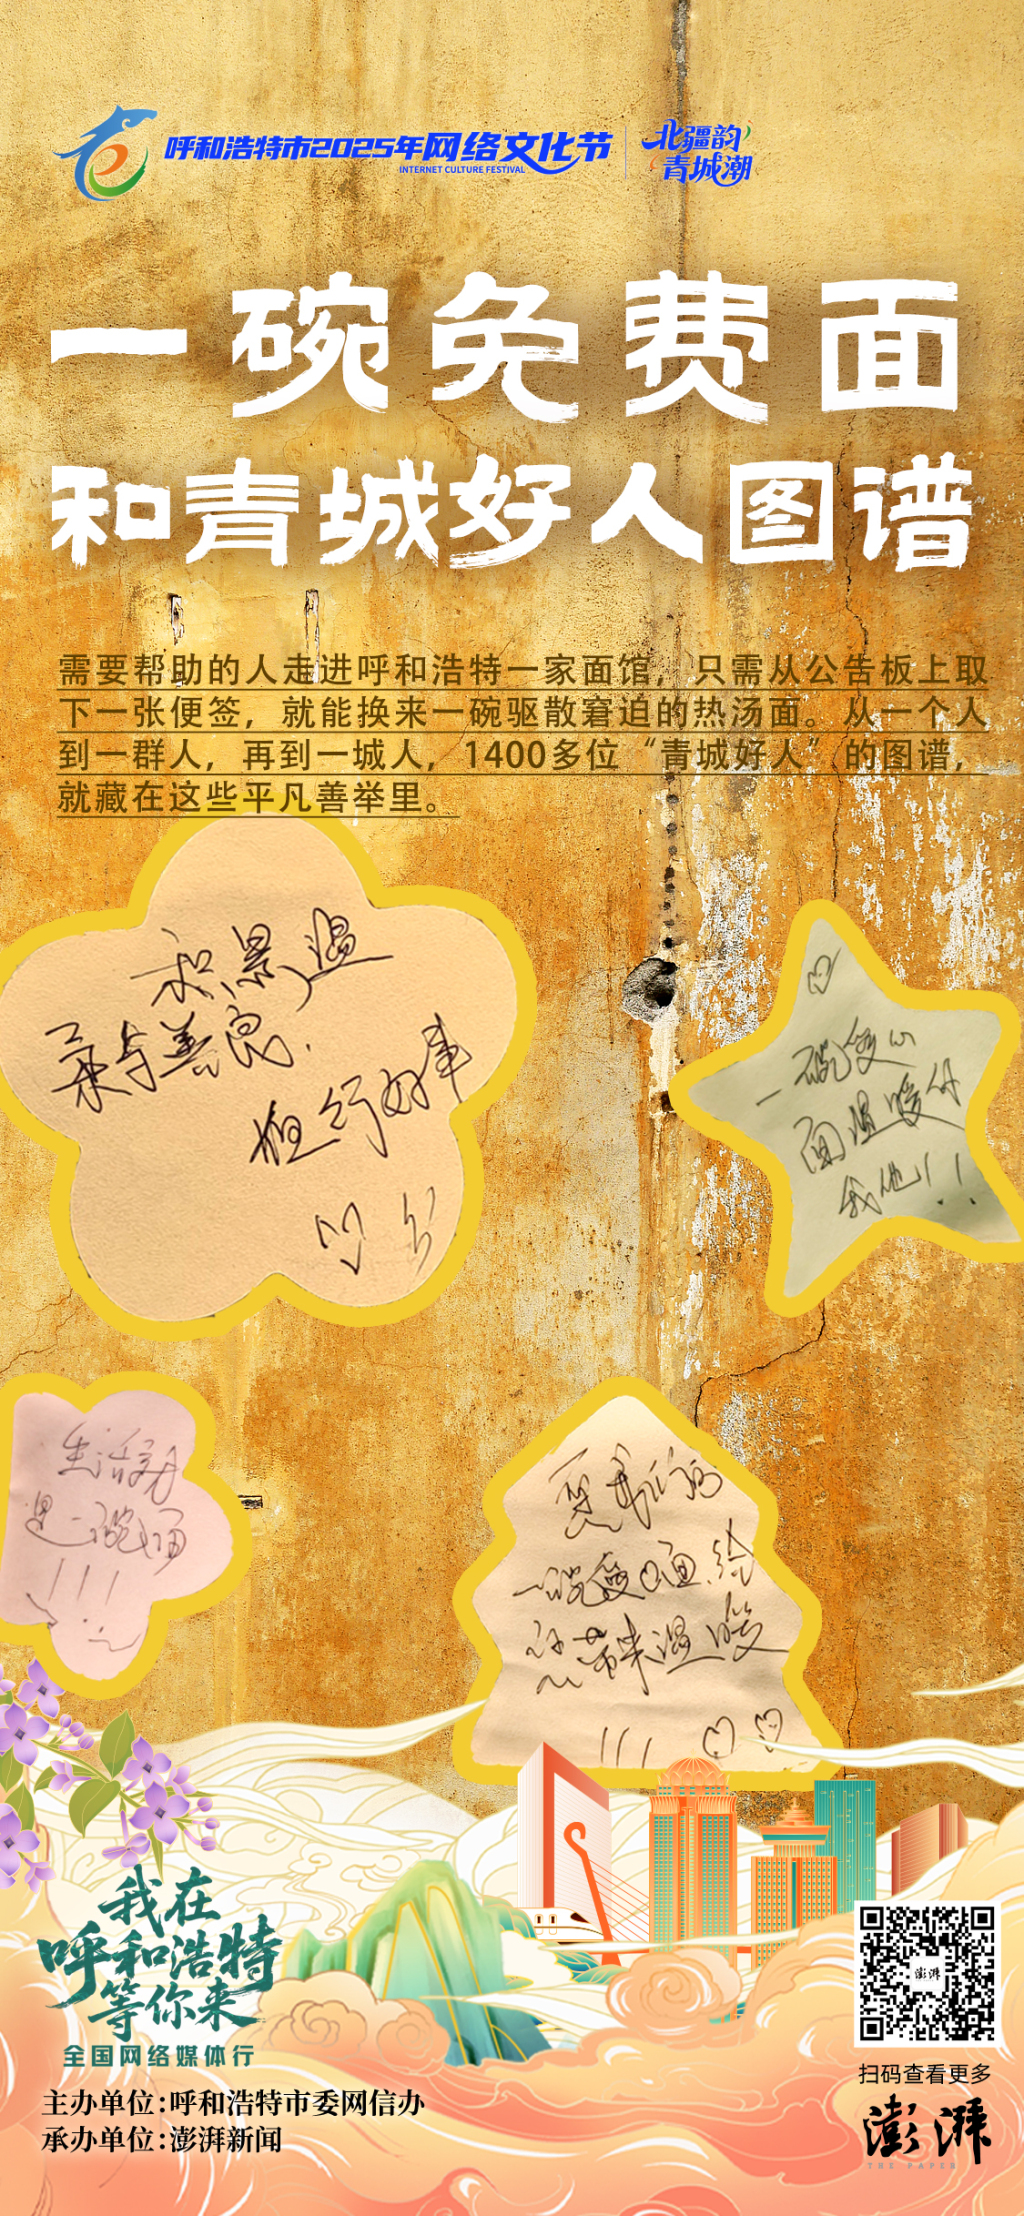 呼和浩特市2025年网络文化节
INTERNET CULTURE FESTIVAL
北疆韵
青城潮
一碗免费面
和青城好人图谱
需要帮助的人走进呼和浩特一家面馆，只需从公告板上取
下一张便签，就能换来一碗驱散窘迫的热汤面。从一个人
到一群人，再到一城人，1400多位“青城好人”的图谱，
就藏在这些平凡善举里。
积累温
柔与善良.
但行好事
一碗爱心
面温暖你
我他！！
一碗爱心面.给
您带来温暖
!!!
我在
呼和浩特
等你来
全国网络媒体行
主办单位:呼和浩特市委网信办
承办单位:澎湃新闻
澎湃
扫码查看更多
澎湃
THE PAPER